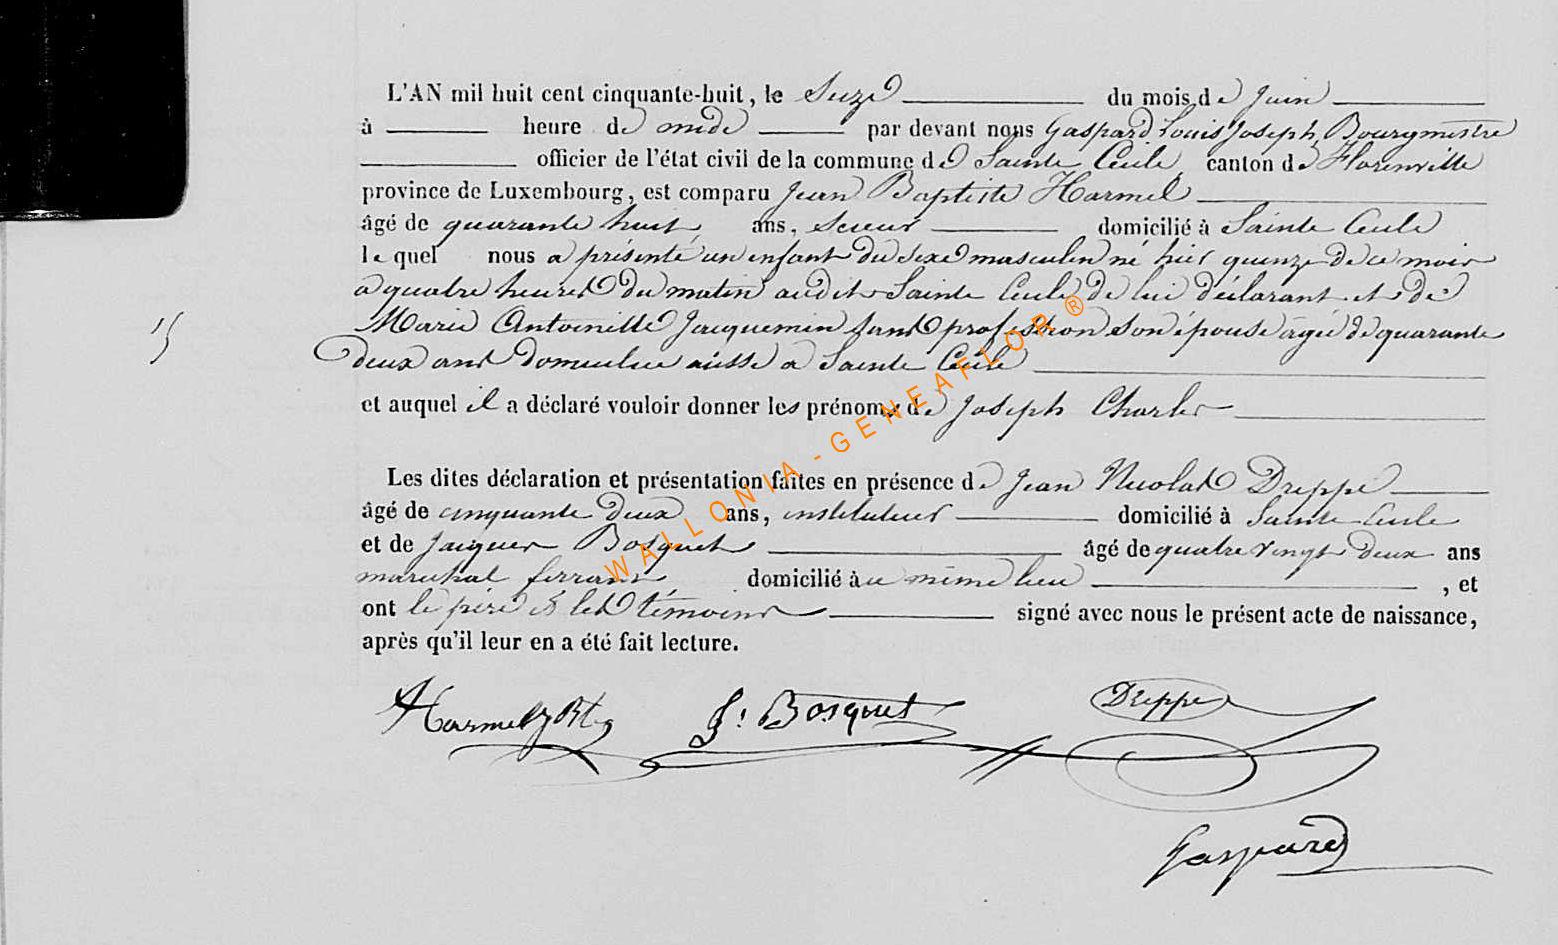 L'AN mil huit cent cinquante-huit, le Seize du mois de Juin
à heure de midi par devant nous Gaspard Louis Joseph Bourgmestre
officier de l'état civil de la commune de Sainte Cécile canton de Florenville
province de Luxembourg, est comparu Jean Baptiste Harmel
âgé de quarante huit ans, scieur domicilié à Sainte Cécile
le quel nous a présenté un enfant du sexe masculin né hier quinze de ce mois
a quatre heures du matin audit Sainte Cécile de lui déclarant et de
Marie Antoinette Jacquemin sans profession son épouse agée de quarante
deux ans domiciliée aussi a Sainte Cécile
15
et auquel il a déclaré vouloir donner les prénoms de Joseph Charles
Les dites déclaration et présentation faites en présence de Jean Nicolas Dreppe
âgé de cinquante deux ans, instituteur domicilié à Sainte Cécile
et de Jacques Bosquet âgé de quatre vingt deux ans
marechal ferrant domicilié à u même lieu , et
ont le père & les témoins signé avec nous le présent acte de naissance,
après qu'il leur en a été fait lecture.
Harmel J Bte
J. Bosquet
Dreppe
Gaspard
WALLONIA - GENEAFLOR ®